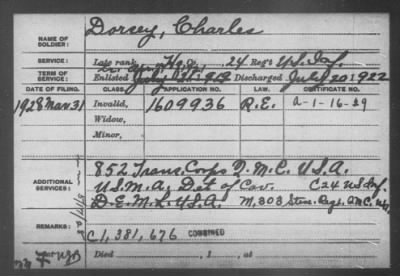 NAME OF SOLDIER: Dorsey, Charles
SERVICE: Late rank, Hq. Co., 24 Reg't U.S. Inf.
TERM OF SERVICE: Enlisted July 21 1919 Discharged July 20 1922
DATE OF FILING. CLASS. APPLICATION NO. LAW. CERTIFICATE NO.
1928 Mar 31 Invalid, 1609936 R.E. A-1-16-29
Widow,
Minor,
852 Trans. Corps Q.M.C. U.S.A.
ADDITIONAL SERVICES: U.S.M.A. Det of Cav. C 24 US Inf.
D.E.M.L. U.S.A. M, 803 Stev. Regt. Q.M.C.
REMARKS: C1,381,676 COMBINED
Died , 1 , at